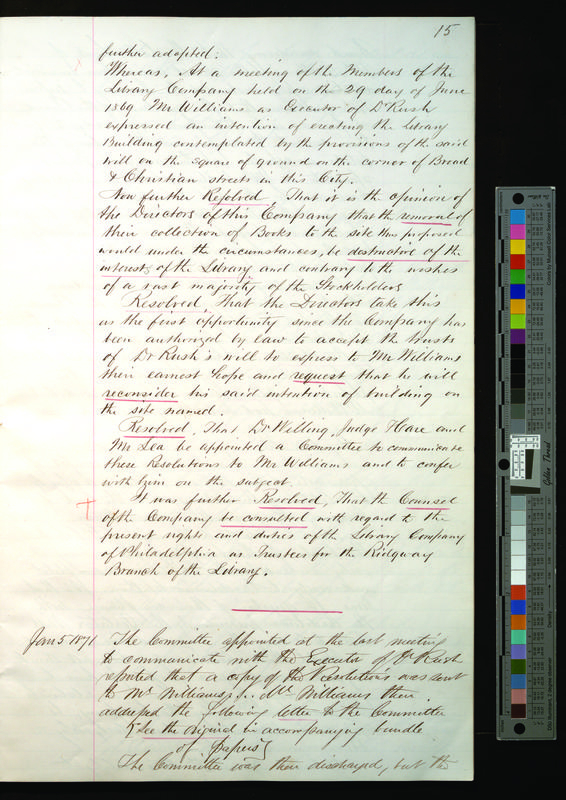 15
further adopted:
Whereas, At a meeting of the Members of the
Library Company held on the 29 day of June
1869 Mr Williams as Executor of Dr Rush
expressed an intention of erecting the Library
Building contemplated by the provisions of the said
will on the square of ground on the corner of Broad
& Christian streets in this City.
Now further Resolved, That it is the opinion of
the Directors of this Company that the removal of
their collection of Books to the site thus proposed
would under the circumstances, be destructive of the
interests of the Library and contrary to the wishes
of a vast majority of the Stockholders
Resolved, That the Directors take this
as the first opportunity since the Company has
been authorized by law to accept the trusts
of Dr Rush's will to express to Mr Williams
their earnest hope and request that he will
reconsider his said intention of building on
the site named.
Resolved, That Dr Willing, Judge Hare and
Mr Lea be appointed a Committee to communicate
these Resolutions to Mr Williams and to confer
with him on the subject.
It was further Resolved, That the Counsel
of the Company be consulted with regard to the
present rights and duties of the Library Company
of Philadelphia as Trustees for the Ridgway
Branch of the Library.
Jan 5 1871 The Committee appointed at the last meeting
to communicate with the Executor of Dr Rush
reported that a copy of the Resolutions was sent
to Mr Williams, Mr Williams then
addressed the following letter to the Committee
See the original in accompanying bundle
of Papers
The Committee was then discharged, but the